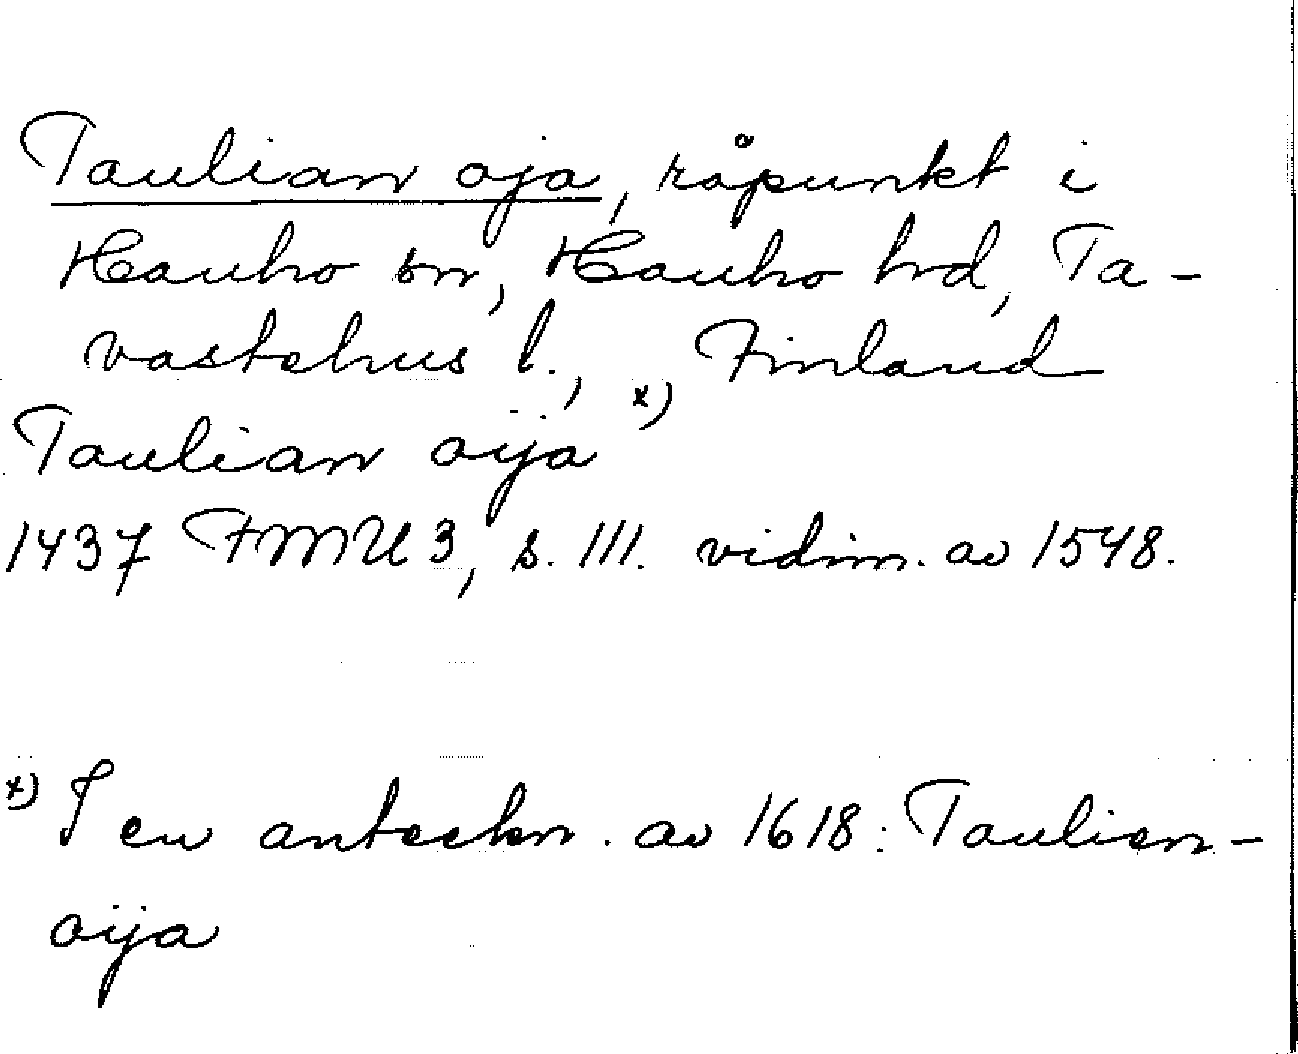 Taulian oja, råpunkt i
Hauho sn, Hauho hrd, Ta-
vastehus l., Finland
Taulian oija x)
1437 FMU 3, s. 111. vidim. av 1548.
x) I en anteckn. av 1618: Taulien-
oija